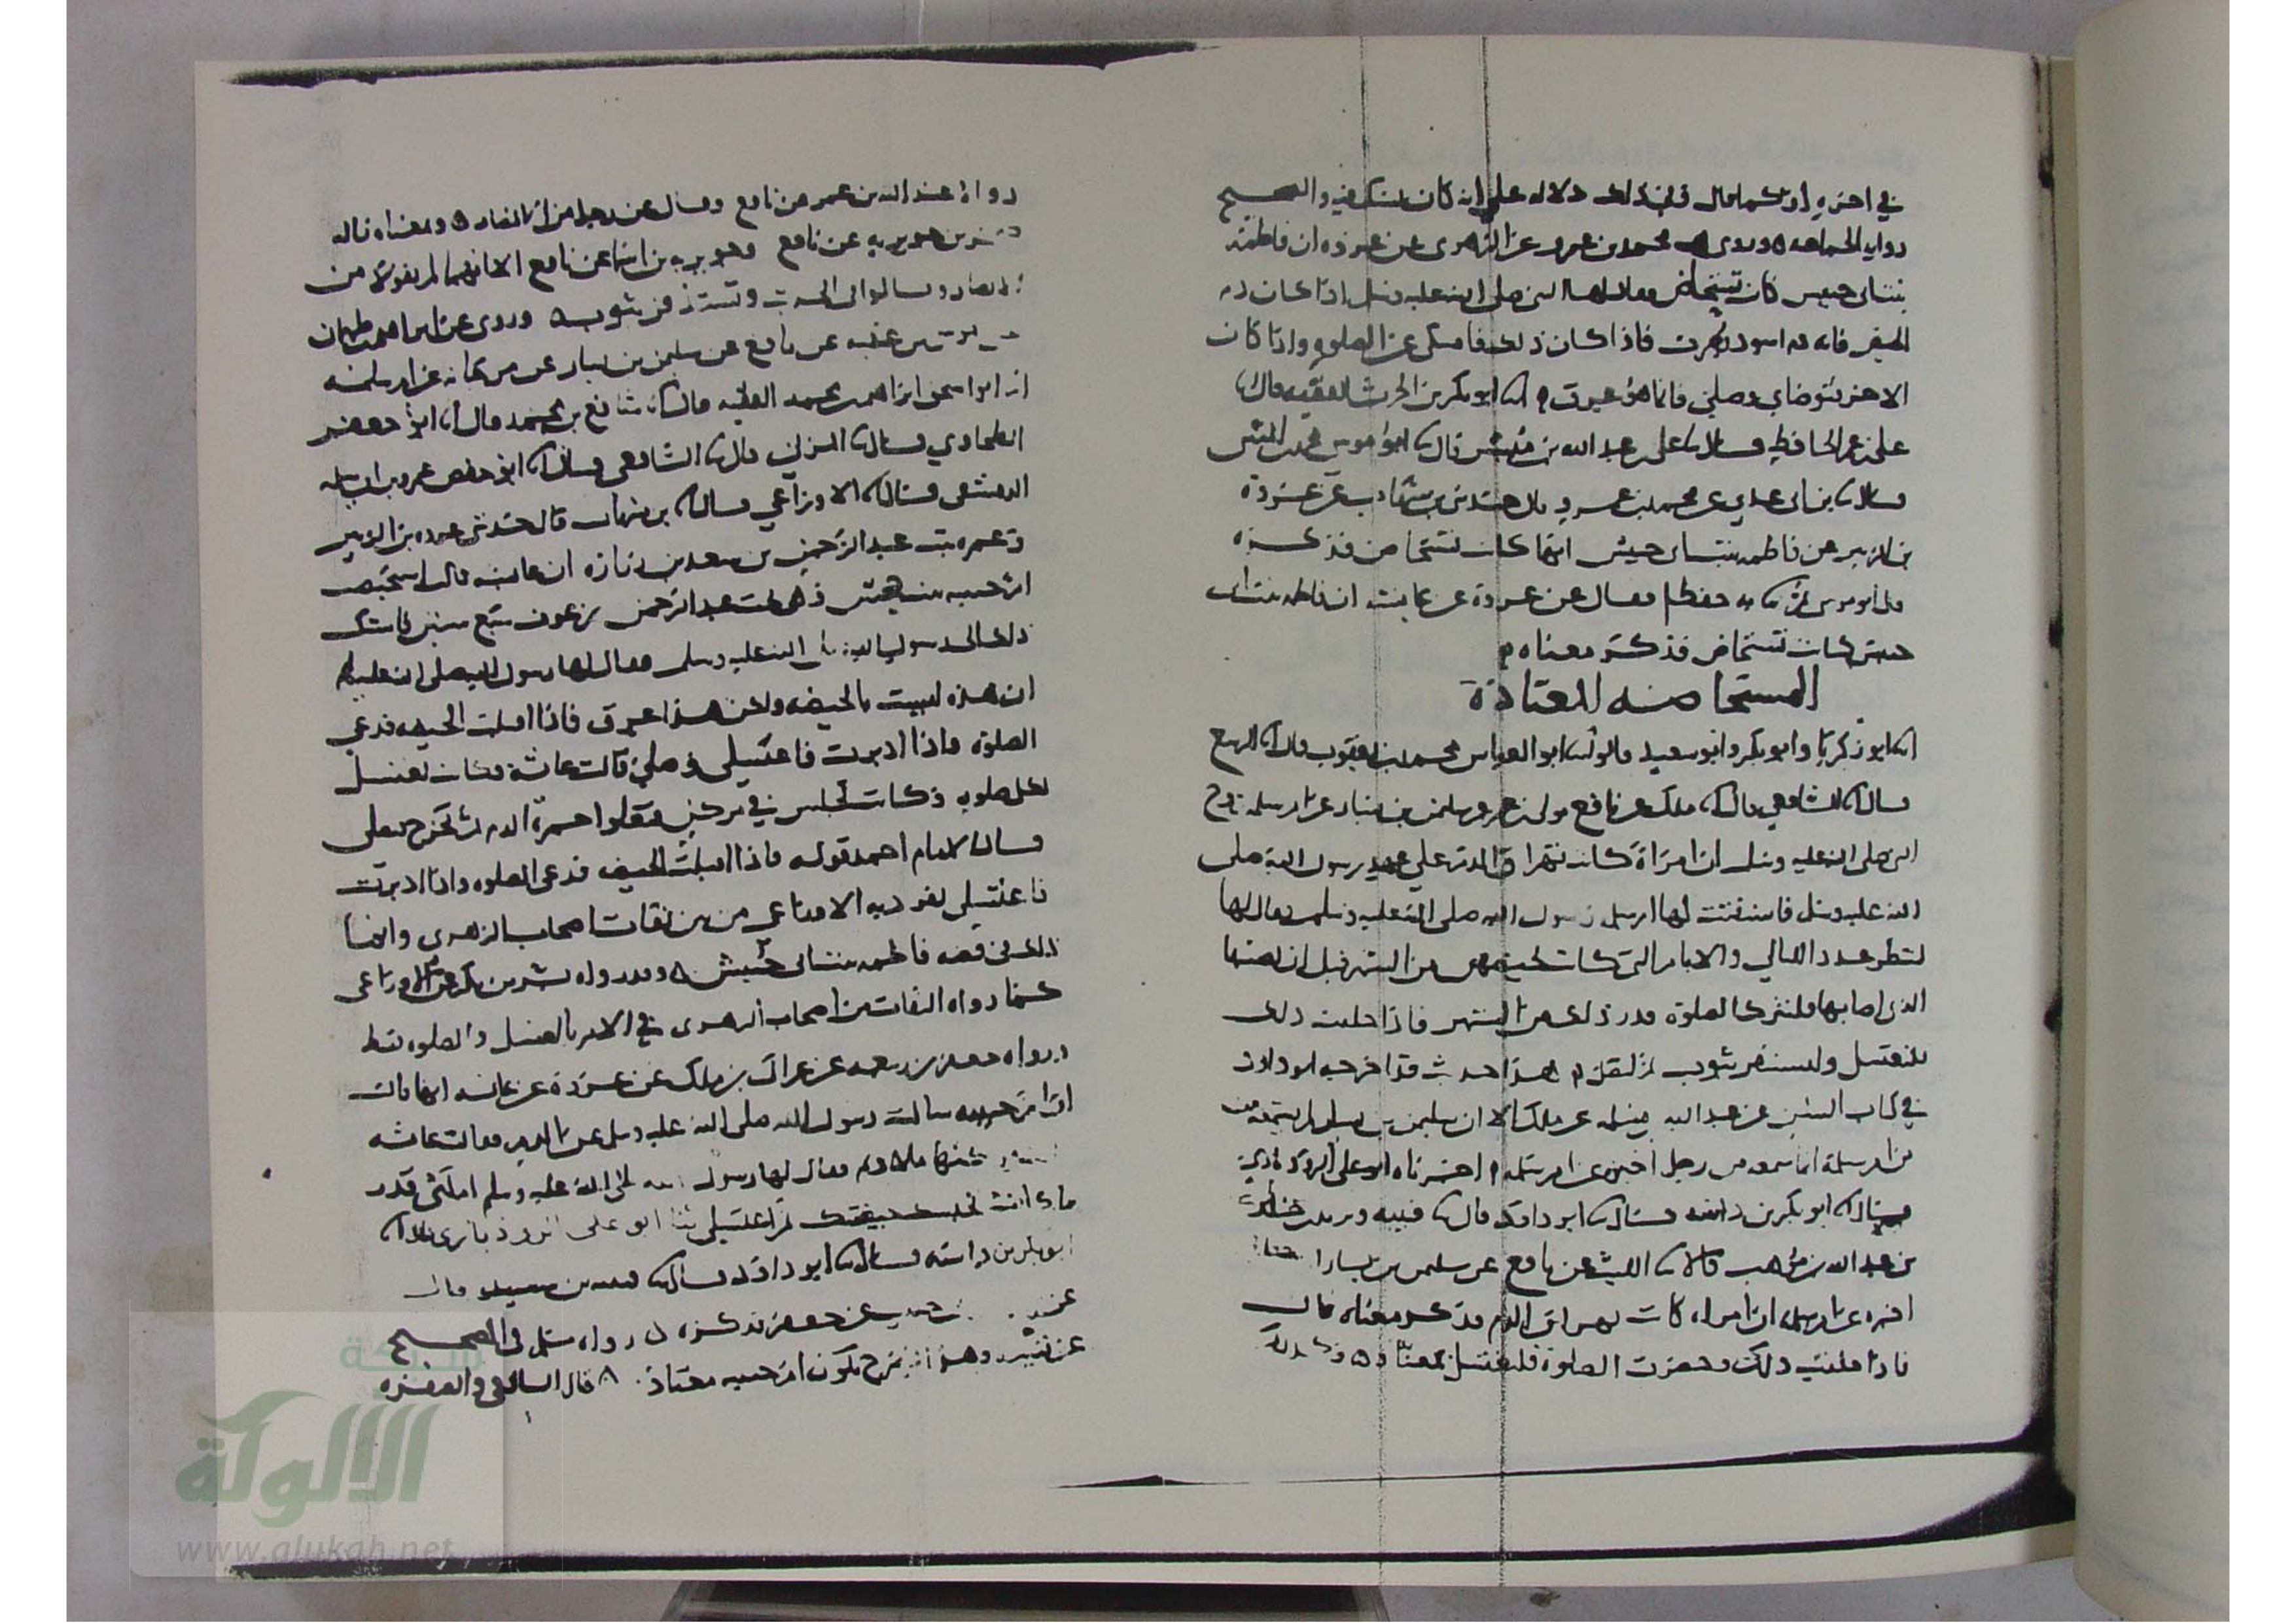 في اخره او كما قال وفي ذلك دلاله على انه كان يشك فيه والصحيح
روايه الجماعه وروى محمد بن عمرو عن الزهرى عن عروه ان فاطمة
بنت ابى حبيش كانت تستحاض فقال لها النبي صلى الله عليه وسلم اذا كان دم
الحيض فانه دم اسود يعرف فاذا كان ذلك فامسكى عن الصلوه واذا كان
الاخر فتوضاى وصلى فانما هو عرق انا ابو بكر بن الحرث الفقيه قال انا
على بن عمر الحافظ قال نا على بن عبد الله بن مبشر قال نا ابو موسى محمد بن المثنى
قال نا بن ابى عدي عن محمد بن عمرو قال حدثنى بن شهاب عن عروة
بن الزبير عن فاطمه بنت ابى حبيش انها كانت تستحاض فذكره
قال ابو موسى ثنا به حفظا فقال عن عروة عن عايشه ان فاطمه بنت ابى
حبيش كانت تستحاض فذكر معناه
المستحاضه المعتادة
انا ابو زكريا وابو بكر وابو سعيد قالوا نا ابو العباس محمد بن يعقوب قال انا الربيع
قال انا الشافعي قال انا ملك عن نافع مولى بن عمر عن سليمن بن يسار عن ام سلمه زوج
النبي صلى الله عليه وسلم ان امراة كانت تهراق الدم على عهد رسول الله صلى
الله عليه وسلم فاستفتت لها ام سلمه رسول الله صلى الله عليه وسلم فقال لها
لتنظر عدد الليالي والايام التي كانت تحيضهن من الشهر قبل ان يصيبها
الذى اصابها فلتترك الصلوة قدر ذلك من الشهر فاذا خلفت ذلك
فلتغتسل ولتستثفر بثوب ثم لتصل هذا حديث قد اخرجه ابو داود
في كتاب السنن عن عبد الله بن مسلمه عن ملك الا ان سليمن بن يسار لم يسمعه من
من ام سلمة انما سمعه من رجل اخبره عن ام سلمه اخبرناه ابو على الروذبارى
قال انا ابو بكر بن داسه قال نا ابو داود قال نا قتيبه ويزيد بن خالد
بن عبد الله بن موهب قالا نا الليث عن نافع عن سليمن بن يسار ان رجلا
اخبره عن ام سلمه ان امراه كانت تهراق الدم فذكر معناه قال
فاذا خلفت ذلك وحضرت الصلوة فلتغتسل بمعناه وكذلك
رواه عبيد الله بن عمر عن نافع وقال عن رجل من الانصار وبمعناه قاله
صخر بن جويريه عن نافع وجويريه بن اسما عن نافع الا انهما لم يقولا من
الانصار وقالوا في الحديث وتستذفر بثوب وروى عن ابراهيم بن طهمان
عن موسى بن عقبه عن نافع عن سليمن بن يسار عن مرجانه عن ام سلمه
انا ابو اسحق ابراهيم بن محمد الفقيه قال انا شافع بن محمد قال انا ابو جعفر
الطحاوي قال نا المزنى قال نا الشافعى قال انا ابو حفص عمرو بن ابى سلمه
الدمشقى قال نا الاوزاعي قال نا بن شهاب قال حدثنى عروه بن الزبير
وعمره بنت عبد الرحمن بن سعد بن زراره ان عايشه قالت استحيضت
ام حبيبه بنت جحش وهى تحت عبد الرحمن بن عوف سبع سنين فاشتكت
ذلك الى رسول الله صلى الله عليه وسلم فقال لها رسول الله صلى الله عليه وسلم
ان هذه ليست بالحيضه ولكن هذا عرق فاذا اقبلت الحيضه فدعي
الصلوة واذا ادبرت فاغتسلى وصلى قالت عايشة فكانت تغتسل
لكل صلوه وكانت تجلس في مركن فتعلوا حمرة الدم ثم تخرج فتصلى
قال الامام احمد قوله فاذا اقبلت الحيضه فدعى الصلوه واذا ادبرت
فاغتسلى تفرد به الاوزاعى من بين ثقات اصحاب الزهرى وانما
ذلك في قصه فاطمه بنت ابى حبيش وقد رواه بشر بن بكر عن الاوزاعى
كما رواه الثقات من اصحاب الزهرى في الامر بالغسل والصلوه فقط
ورواه جعفر بن ربيعه عن عراك بن ملك عن عروة عن عايشه انها قالت
ان ام حبيبه سالت رسول الله صلى الله عليه وسلم عن الدم فقالت عائشه
مركنها ملان دم فقال لها رسول الله صلى الله عليه وسلم امكثى قدر
ما كانت تحبسك حيضتك ثم اغتسلى ثنا ابو على الروذبارى قال انا
ابو بكر بن داسه قال نا ابو داود قال نا قتيبه بن سعيد قال
عن جعفر فذكره رواه مسلم في الصحيح
عن قتيبه وهو ان يكون ام حبيبه معتادة قال الشافعى
الالوكة
شبكة
www.alukah.net